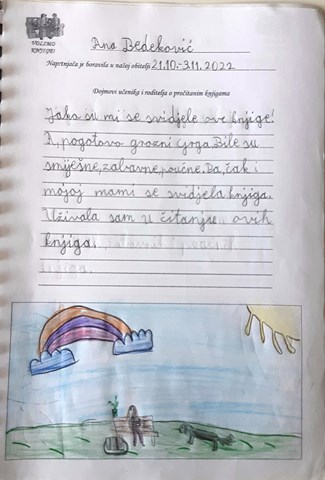 VOLIMO
KNJIGE!
Ana Bedeković
Naprtnjača je boravila u našoj obitelji 21.10.-3.11.2022
Dojmovi učenika i roditelja o pročitanim knjigama
Jako su mi se svidjele ove knjige!
A, pogotovo grozni Grga. Bile su
smiješne, zabavne, poučne. Da, čak i
mojoj mami se svidjela knjiga.
Uživala sam u čitanju ovih
knjiga.